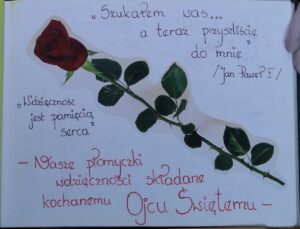 „Szukałem was...
a teraz przyszliście
do mnie"
/Jan Paweł II/
„Wdzięczność
jest pamięcią
serca"
- Nasze płomyczki
wdzięczności składane
kochanemu Ojcu Świętemu -